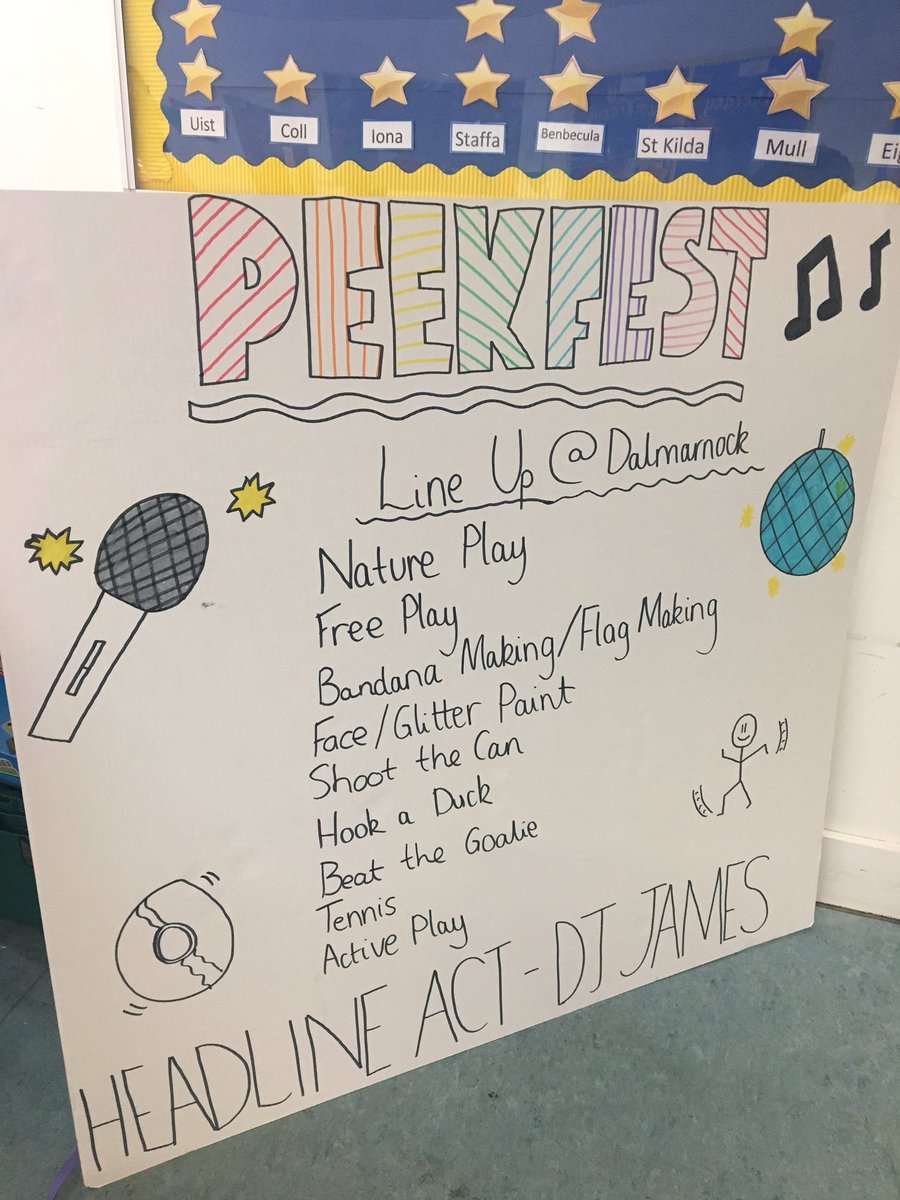 Uist
Coll
Iona
Staffa
Benbecula
St Kilda
Mull
PEEKFEST
Line Up @ Dalmarnock
Nature Play
Free Play
Bandana Making/Flag Making
Face/Glitter Paint
Shoot the Can
Hook a Duck
Beat the Goalie
Tennis
Active Play
HEADLINE ACT - DJ JAMES